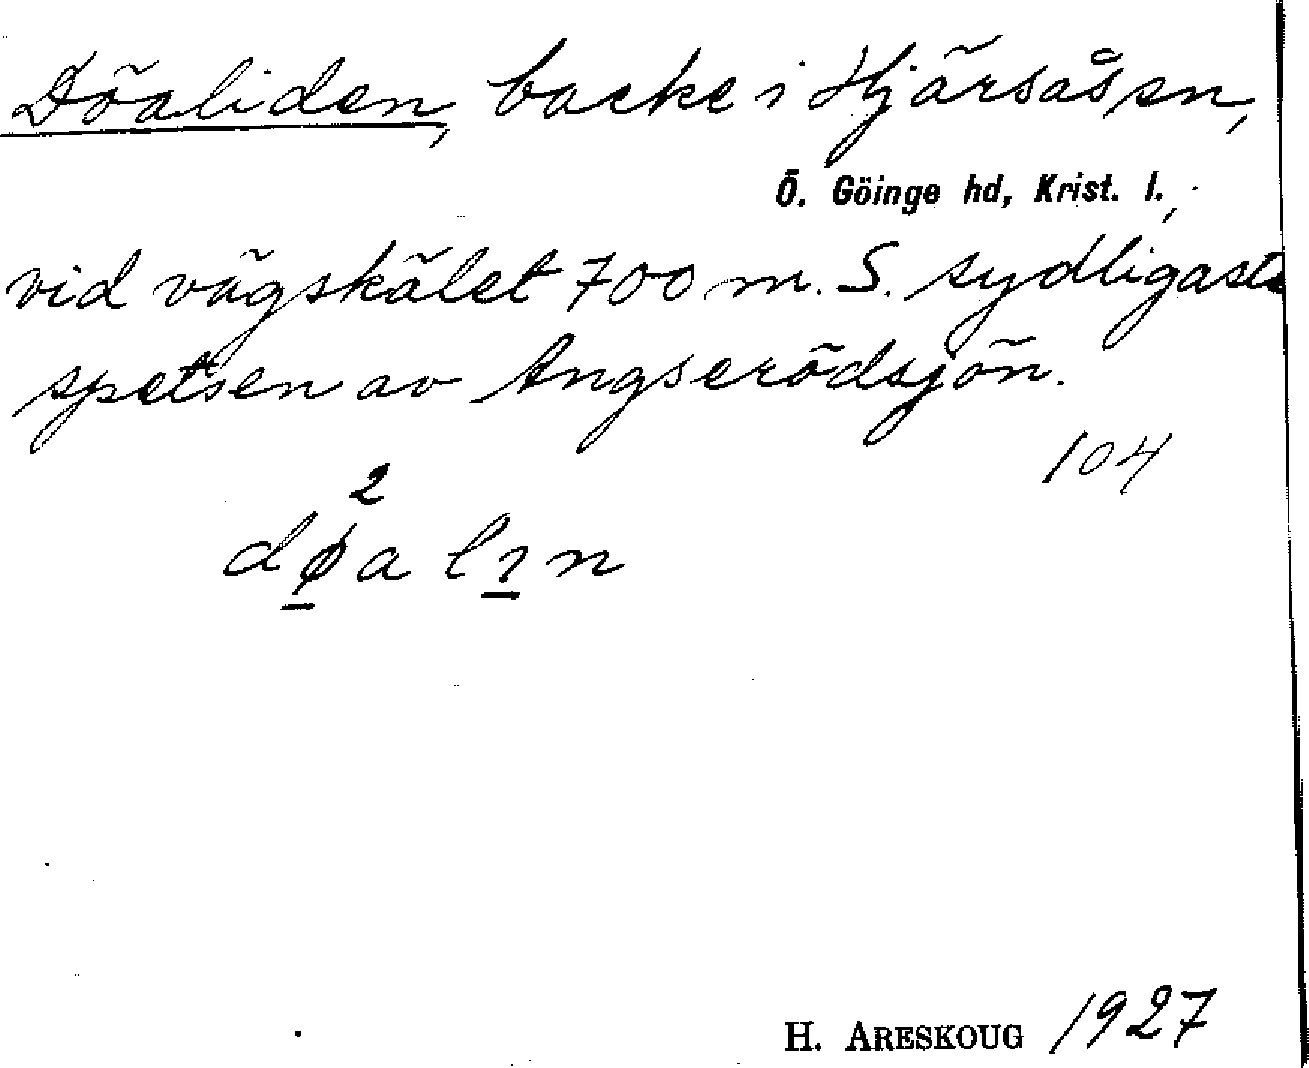 Döaliden, backe i Hjärsåsen,
Ö. Göinge hd, Krist. l.,
vid vägskälet 700 m. S. sydligaste
spetsen av Angserödsjön.
104
2
døa lın
H. ARESKOUG 1927